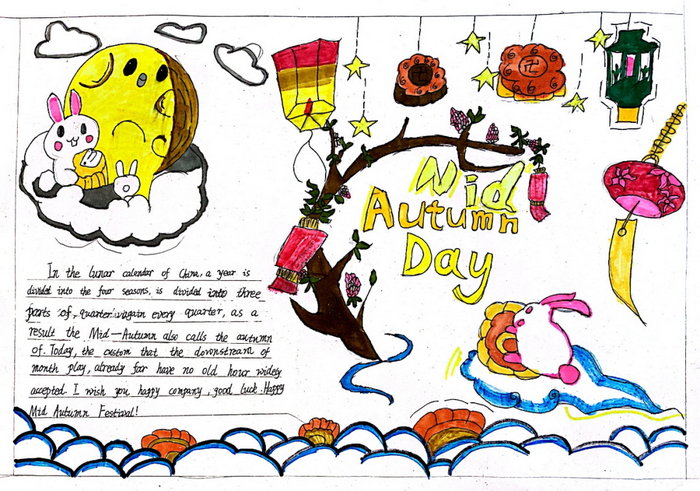 Mid
Autumn
Day
In the lunar calendar of China, a year is
divided into the four seasons, is divided into three
parts of, quarter again every quarter, as a
result the Mid-Autumn also calls the autumn
of. Today, the custom that the downstream of
month play, already far have no old hour widely
accepted. I wish you happy company, good luck. Happy
Mid Autumn Festival!
卍
卍